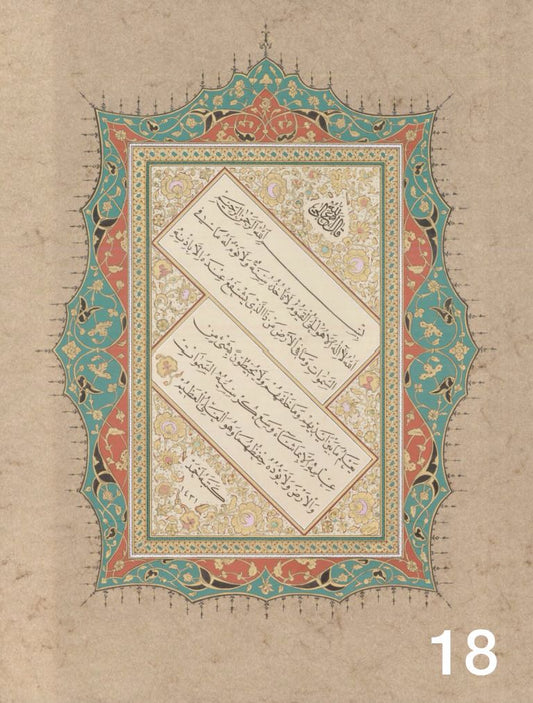 بِسْمِ اللهِ الرَّحْمٰنِ الرَّحِيمِ
اَللهُ لَا اِلٰهَ اِلَّا هُوَ الْحَيُّ الْقَيُّومُ لَا تَأْخُذُهُ سِنَةٌ وَلَا نَوْمٌ لَهُ مَا فِي
السَّمٰوَاتِ وَمَا فِي الْاَرْضِ مَنْ ذَا الَّذِي يَشْفَعُ عِنْدَهُ اِلَّا بِاِذْنِهِ
يَعْلَمُ مَا بَيْنَ اَيْدِيهِمْ وَمَا خَلْفَهُمْ وَلَا يُحِيطُونَ بِشَيْءٍ مِنْ
عِلْمِهِ اِلَّا بِمَا شَاءَ وَسِعَ كُرْسِيُّهُ السَّمٰوَاتِ
وَالْاَرْضَ وَلَا يَؤُدُهُ حِفْظُهُمَا وَهُوَ الْعَلِيُّ الْعَظِيمُ
كتبه
١٤٣١
18